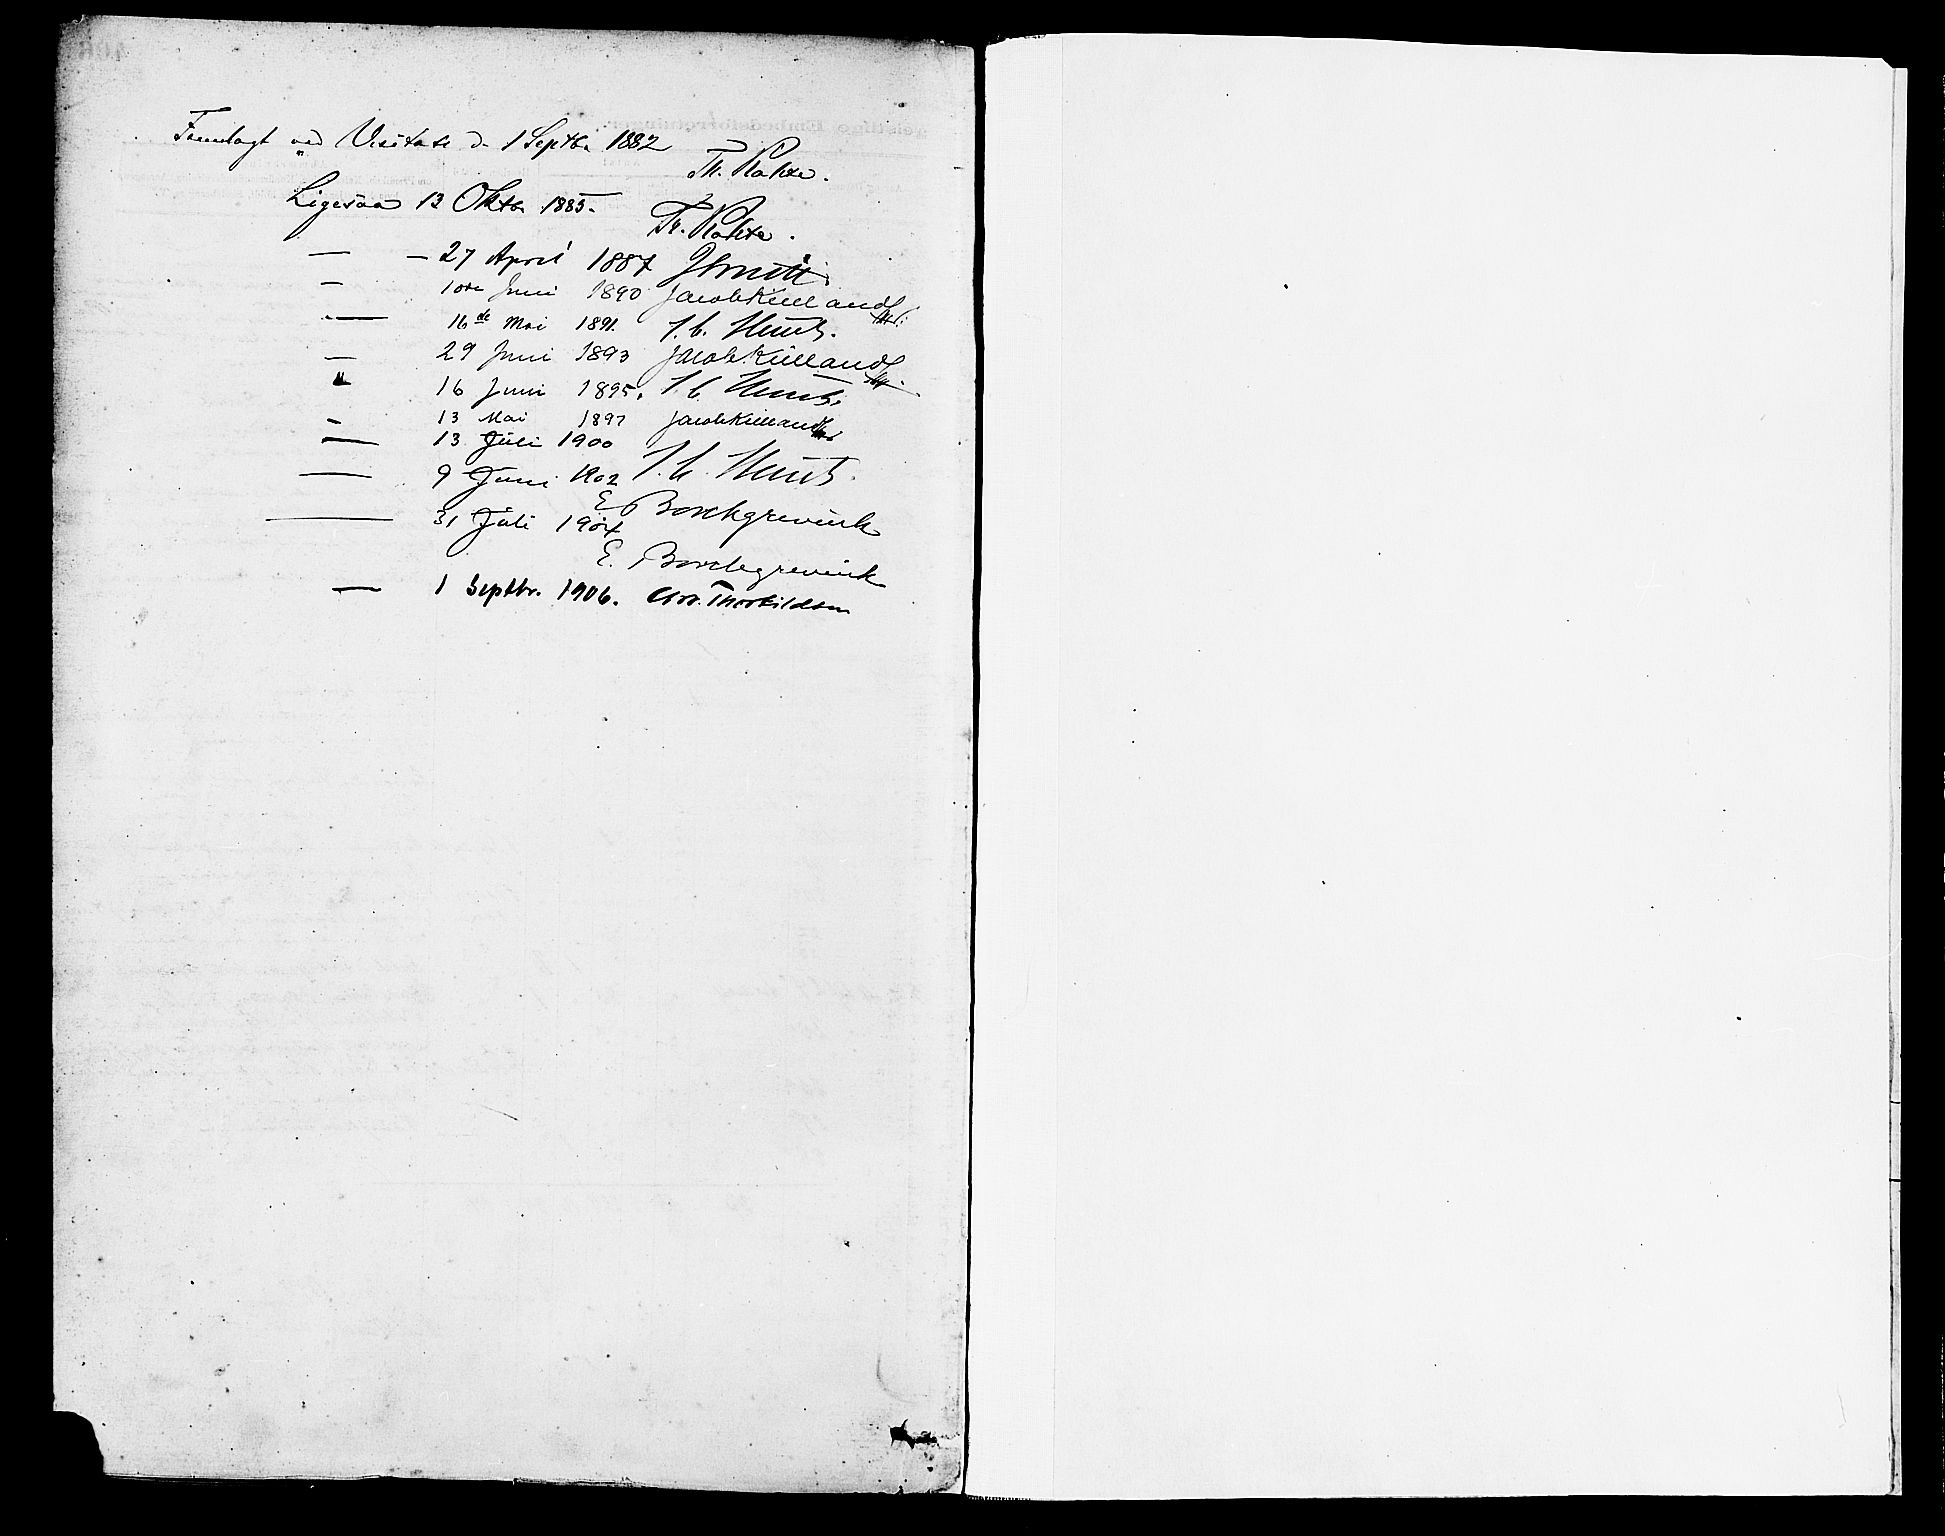 Fremlagt ved Visitats d. 1 Septbr 1882
Ligesaa 13 Oktbr 1885.
— — 27 April 1887
— 10de Juni 1890 Jacob Kielland
— 16de Mai 1891.
— 29 Juni 1893 Jacob Kielland
" 16 Juni 1895.
— 13 Mai 1897 Jacob Kielland
— 13 Juli 1900
— 9 Juni 1902
E Borchgrevink
— 31 Juli 1904
E. Borchgrevink
— 1 Septbr. 1906. Chr. Thorkildsen